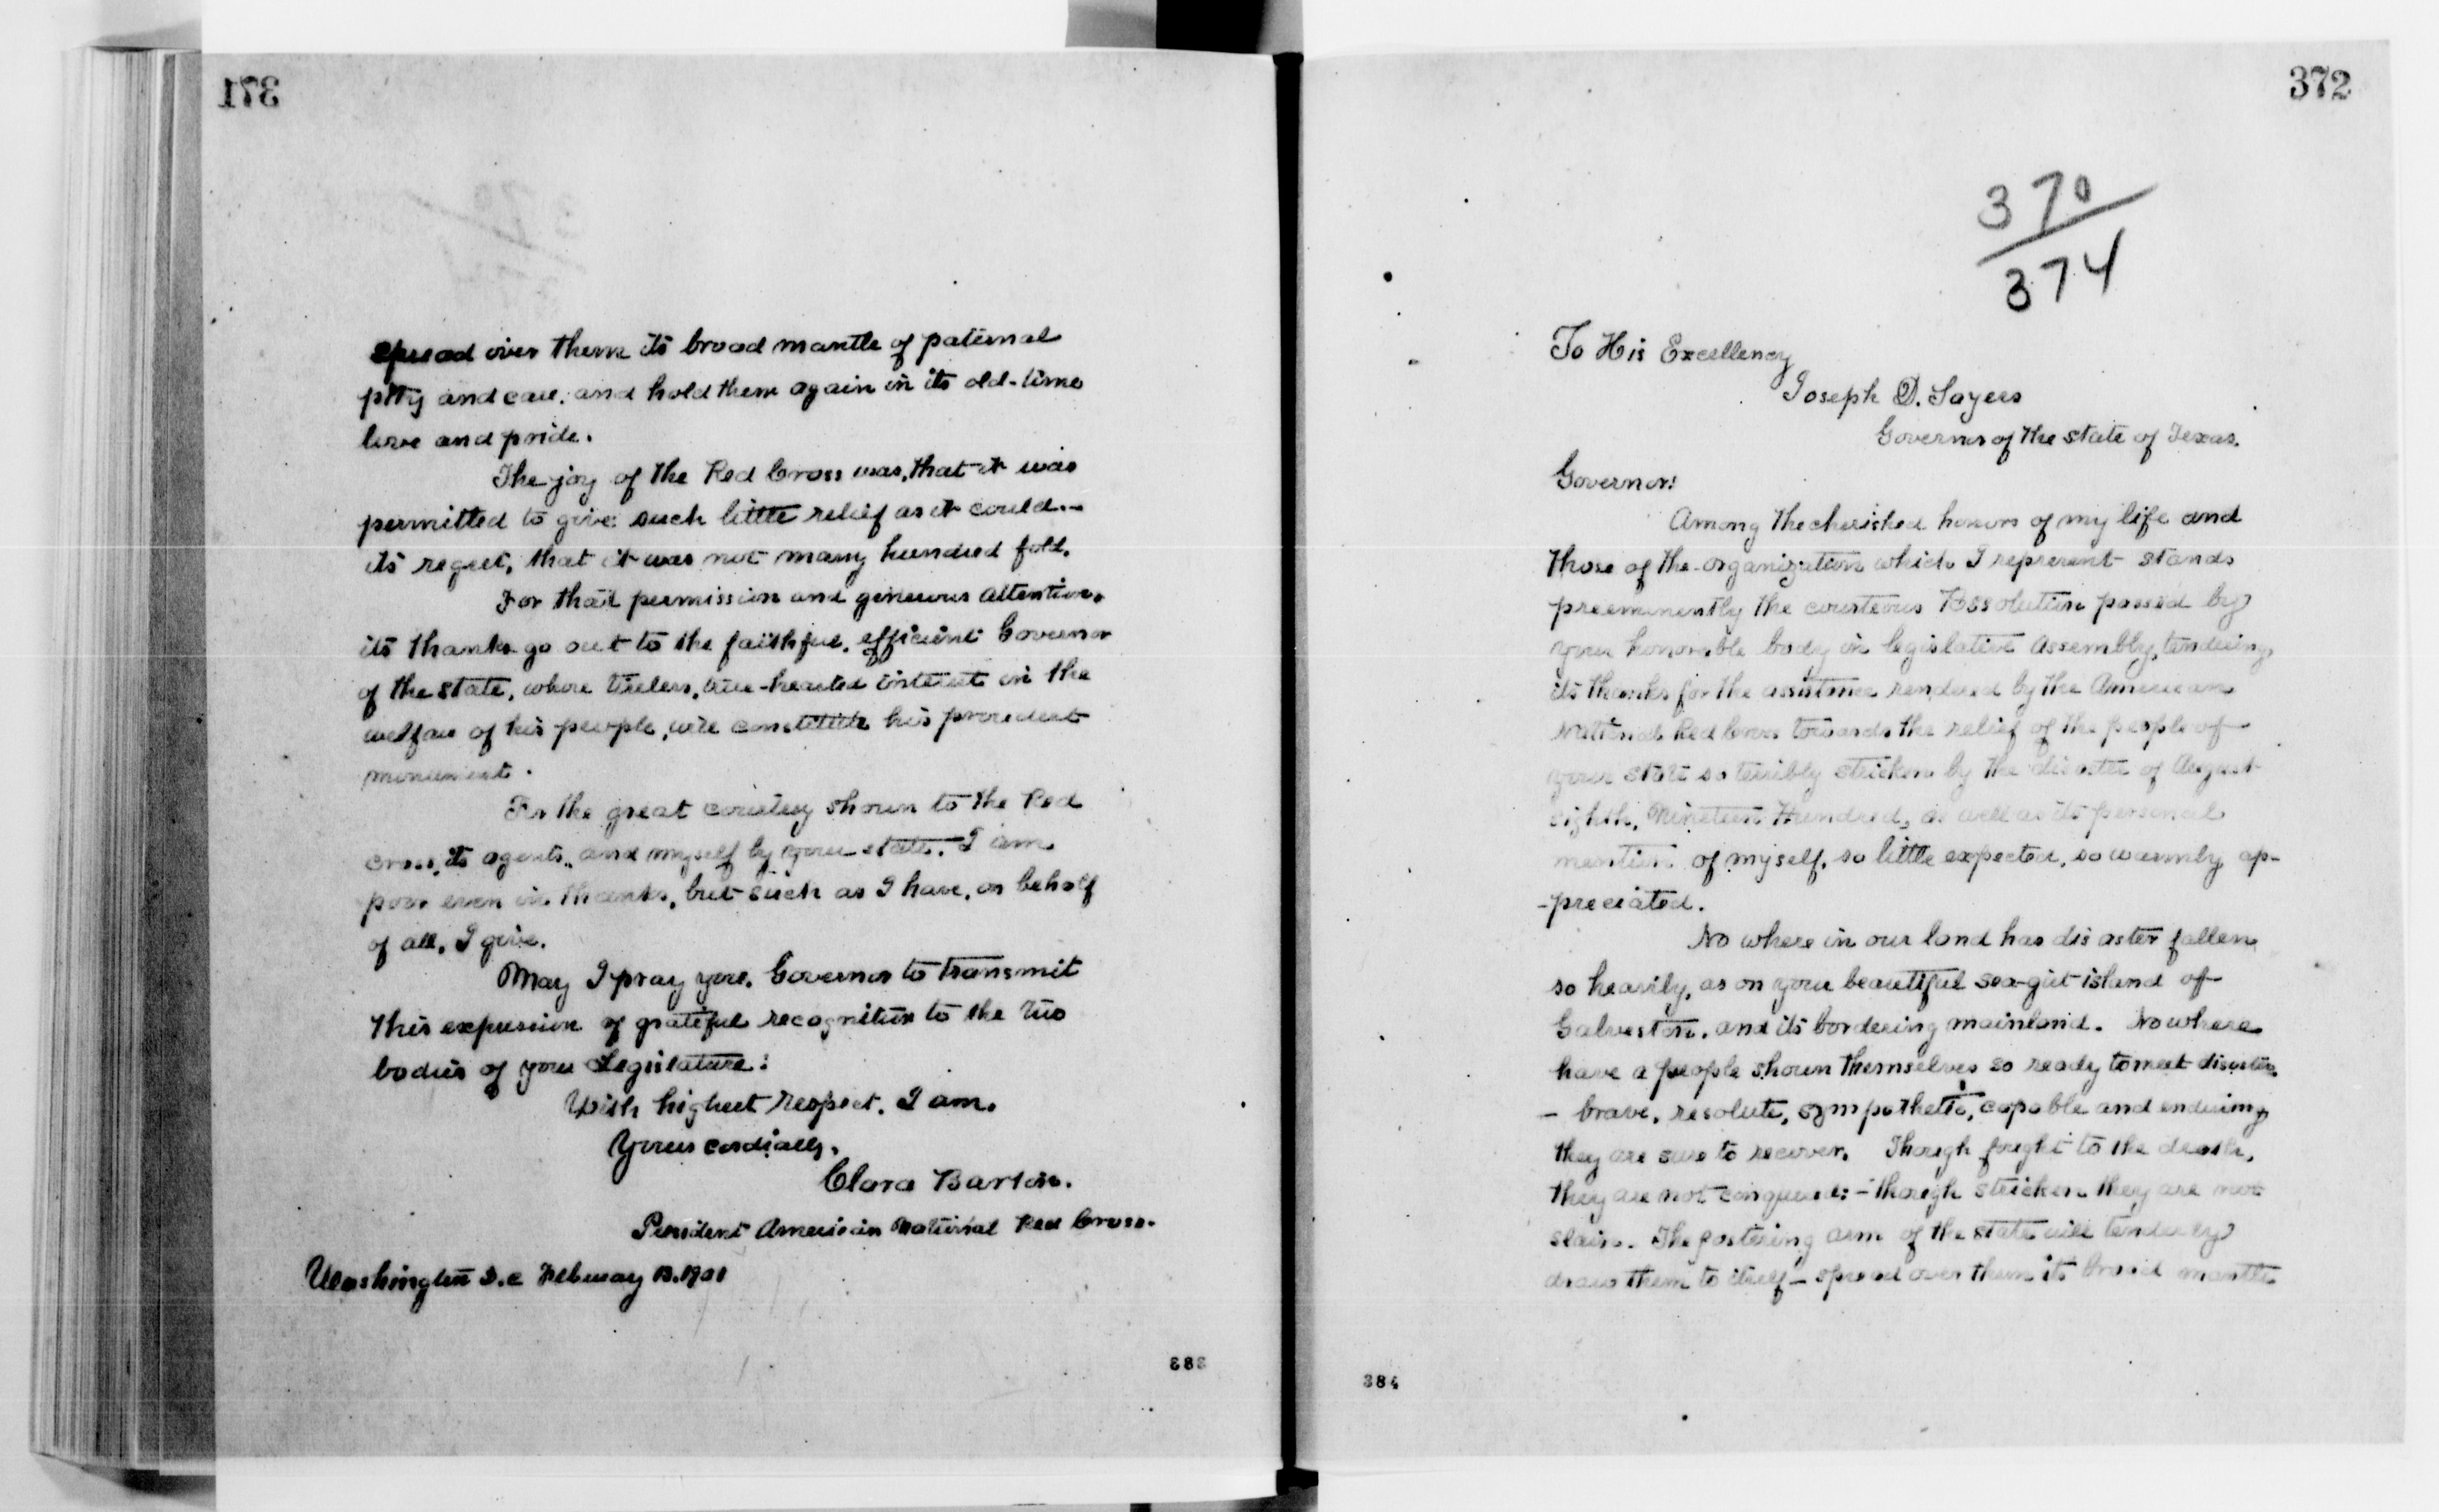 371
spread over them its broad mantle of paternal
pity and care, and hold them again in its old-time
love and pride.
The joy of the Red Cross was, that it was
permitted to give such little relief as it could.-
its regret, that it was not many hundred fold.
For that permission and generous attention,
its thanks go out to the faithful, efficient Governor
of the state, whose tireless, true-hearted interest in the
welfare of his people, will constitute his proudest
monument.
For the great courtesy shown to the Red
Cross, its agents, and myself by your state, I am
poor even in thanks, but such as I have, on behalf
of all, I give.
May I pray you, Governor to transmit
this expression of grateful recognition to the two
bodies of your Legislature:
With highest respect, I am,
Yours cordially,
Clara Barton.
President American National Red Cross.
Washington D.C February 13. 1901
383
372
370
374
To His Excellency
Joseph D. Sayers
Governor of the state of Texas.
Governor:
Among the cherished honors of my life and
those of the organization which I represent stands
preeminently the courteous Resolution passed by
your honorable body in legislative Assembly, tendering
its thanks for the assistance rendered by the American
National Red Cross towards the relief of the people of
your state so terribly stricken by the disaster of August
eighth, Nineteen Hundred, as well as its personal
mention of myself, so little expected, so warmly ap-
-preciated.
No where in our land has disaster fallen
so heavily, as on your beautiful sea-girt island of
Galveston, and its bordering mainland. Nowhere
have a people shown themselves so ready to meet disaster.
- brave, resolute, sympathetic, capable and enduring
they are sure to recover. Though fought to the death,
they are not conquered: - though stricken they are not
slain. The fostering arm of the state will tenderly
draw them to itself - spread over them its broad mantle
384